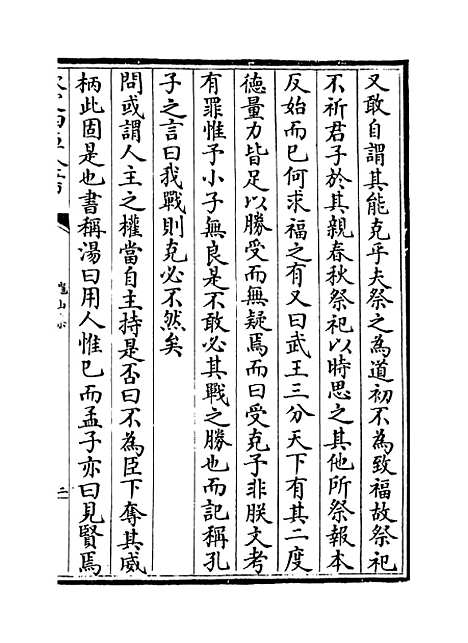 又敢自謂其能克乎夫祭之為道初不為致福故祭祀
不祈君子於其親春秋祭祀以時思之其他所祭報本
反始而已何求福之有又曰武王三分天下有其二度
德量力皆足以勝受而無疑焉而曰受克予非朕文考
有罪惟予小子無良是不敢必其戰之勝也而記稱孔
子之言曰我戰則克必不然矣
問或謂人主之權當自主持是否曰不為臣下奪其威
柄此固是也書稱湯曰用人惟已而孟子亦曰見賢焉